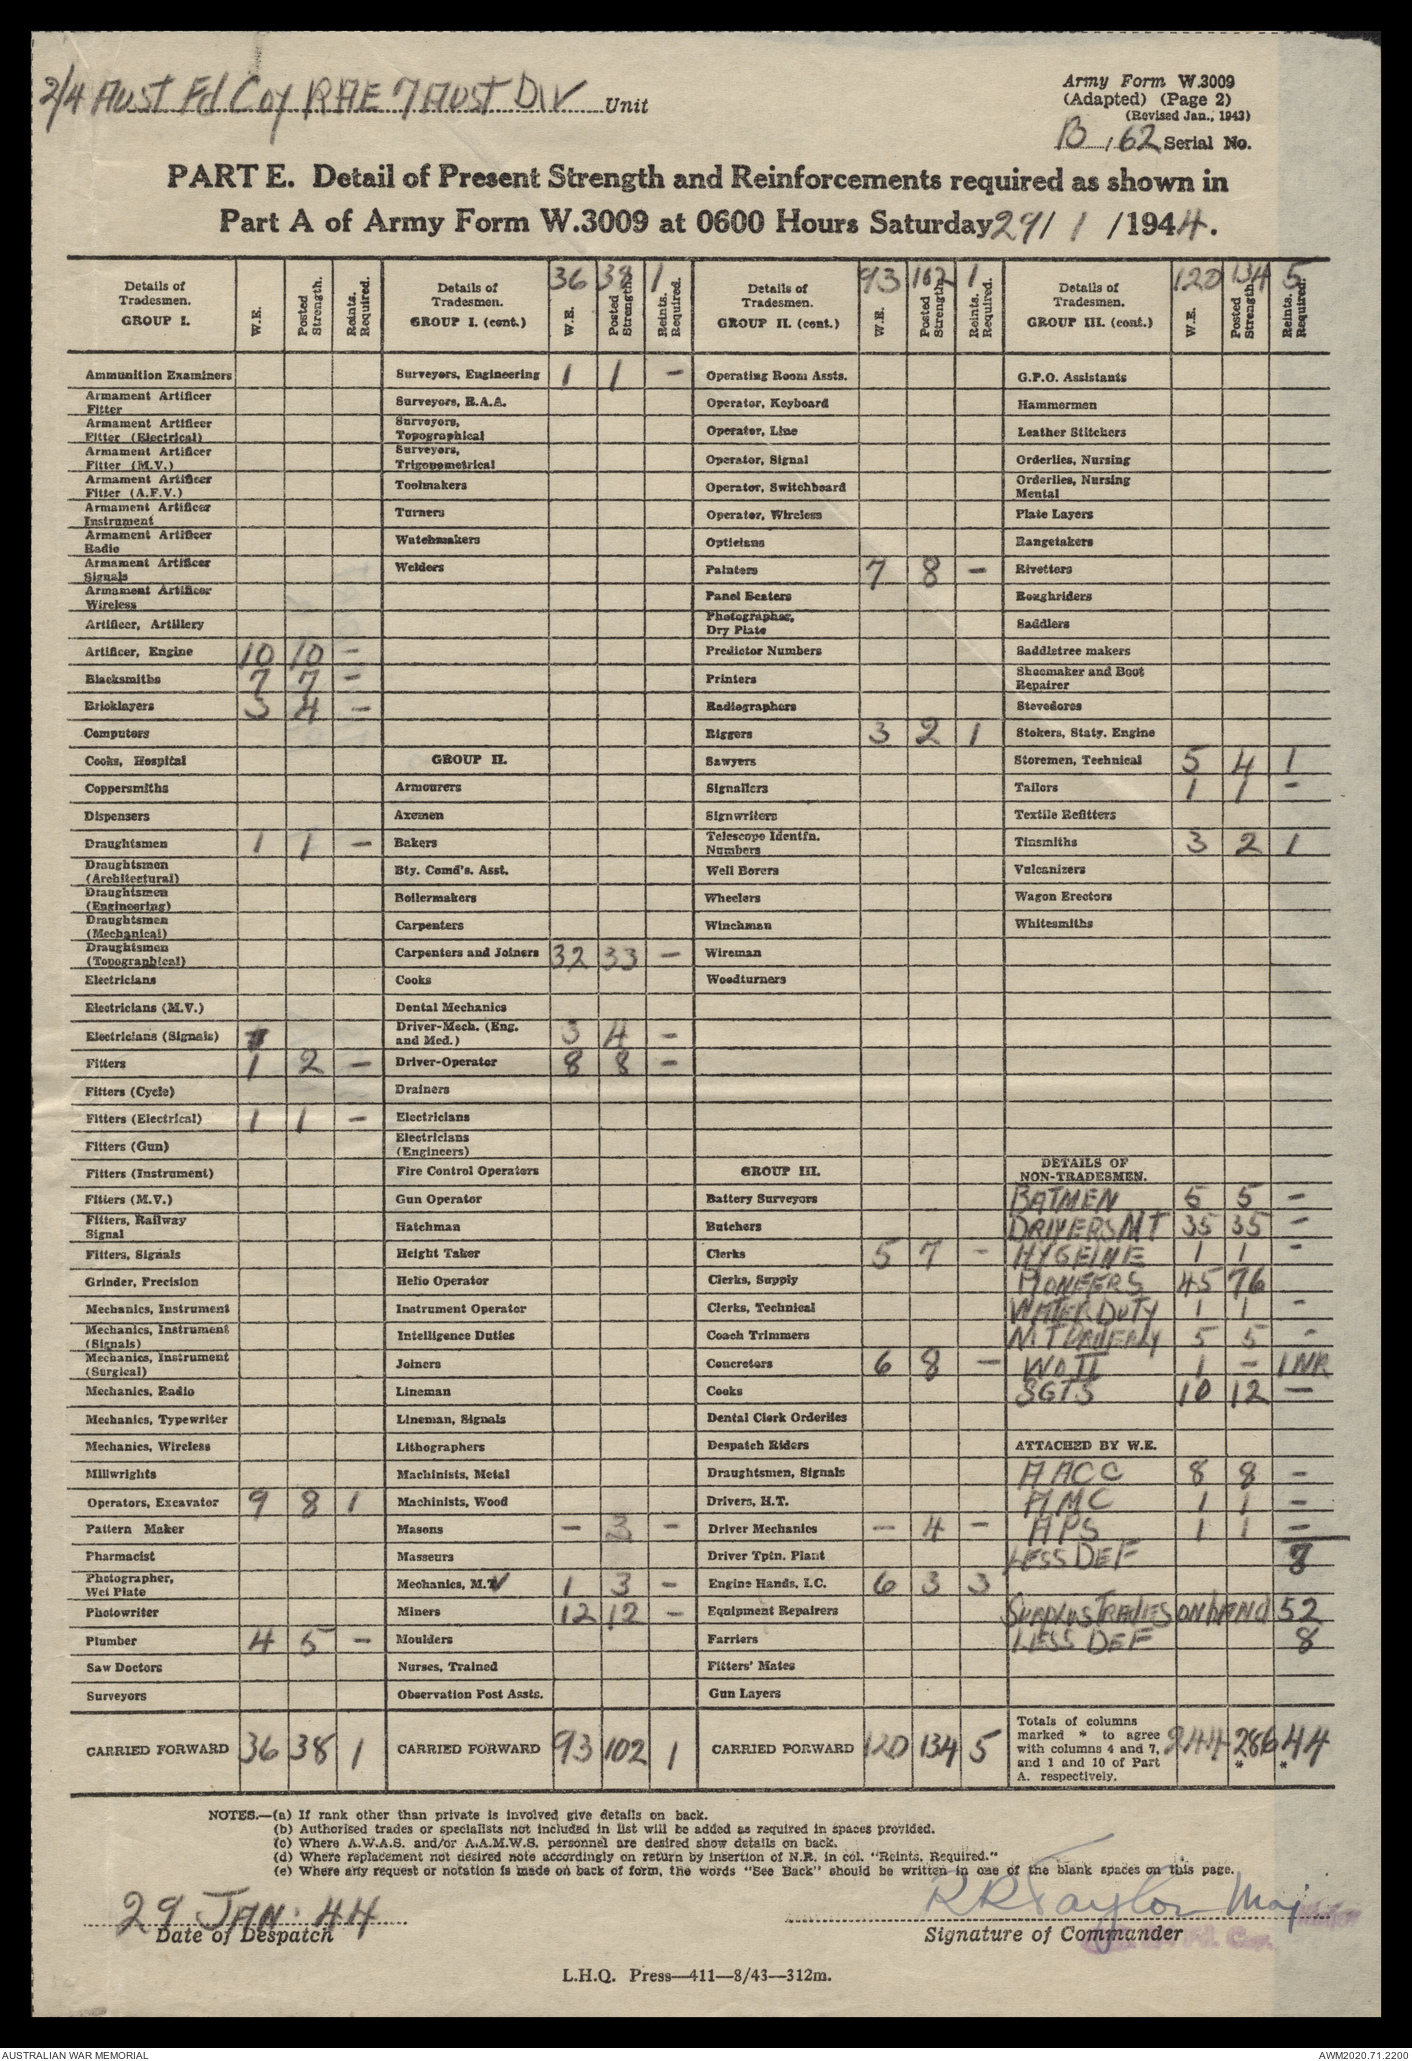 2/4 Aust Fd Coy RAE 7 Aust Div Unit
Army Form W.3009
(Adapted) (Page 2)
(Revised Jan., 1943)
B / 62 Serial No.
PART E. Detail of Present Strength and Reinforcements required as shown in
Part A of Army Form W.3009 at 0600 Hours Saturday 29/ 1 /1944.
Details of Tradesmen. GROUP I. W.E. Posted Strength. Reints. Required.
Ammunition Examiners
Armament Artificer Fitter
Armament Artificer Fitter (Electrical)
Armament Artificer Fitter (M.V.)
Armament Artificer Fitter (A.F.V.)
Armament Artificer Instrument
Armament Artificer Radio
Armament Artificer Signals
Armament Artificer Wireless
Artificer, Artillery
Artificer, Engine 10 10 -
Blacksmiths 7 7 -
Bricklayers 3 4 -
Computors
Cooks, Hospital
Coppersmiths
Dispensers
Draughtsmen 1 1 -
Draughtsmen (Architectural)
Draughtsmen (Engineering)
Draughtsmen (Mechanical)
Draughtsmen (Topographical)
Electricians
Electricians (M.V.)
Electricians (Signals)
Fitters 1 2 -
Fitters (Cycle)
Fitters (Electrical) 1 1 -
Fitters (Gun)
Fitters (Instrument)
Fitters (M.V.)
Fitters, Railway Signal
Fitters, Signals
Grinder, Precision
Mechanics, Instrument
Mechanics, Instrument (Signals)
Mechanics, Instrument (Surgical)
Mechanics, Radio
Mechanics, Typewriter
Mechanics, Wireless
Millwrights
Operators, Excavator 9 8 1
Pattern Maker
Pharmacist
Photographer, Wet Plate
Photowriter
Plumber 4 5 -
Saw Doctors
Surveyors
CARRIED FORWARD 36 38 1
Details of Tradesmen. GROUP I. (cont.) 36 38 1 W.E. Posted Strength. Reints. Required.
Surveyors, Engineering 1 1 -
Surveyors, R.A.A.
Surveyors, Topographical
Surveyors, Trigonometrical
Toolmakers
Turners
Watchmakers
Welders
GROUP II.
Armourers
Axemen
Bakers
Bty. Comd's. Asst.
Boilermakers
Carpenters
Carpenters and Joiners 32 33 -
Cooks
Dental Mechanics
Driver-Mech. (Eng. and Med.) 3 4 -
Driver-Operator 8 8 -
Drainers
Electricians
Electricians (Engineers)
Fire Control Operators
Gun Operator
Hatchman
Height Taker
Helio Operator
Instrument Operator
Intelligence Duties
Joiners
Lineman
Lineman, Signals
Lithographers
Machinists, Metal
Machinists, Wood
Masons - 3 -
Masseurs
Mechanics, M.V 1 3 -
Miners 12 12 -
Moulders
Nurses, Trained
Observation Post Assts.
CARRIED FORWARD 93 102 1
Details of Tradesmen. GROUP II. (cont.) 93 102 1 W.E. Posted Strength. Reints. Required.
Operating Room Assts.
Operator, Keyboard
Operator, Line
Operator, Signal
Operator, Switchboard
Operator, Wireless
Opticians
Painters 7 8 -
Panel Beaters
Photographer, Dry Plate
Predictor Numbers
Printers
Radiographers
Riggers 3 2 1
Sawyers
Signallers
Signwriters
Telescope Identfn. Numbers
Well Borers
Wheelers
Winchman
Wireman
Woodturners
GROUP III.
Battery Surveyors
Butchers
Clerks 5 7 -
Clerks, Supply
Clerks, Technical
Coach Trimmers
Concretors 6 8 -
Cooks
Dental Clerk Orderlies
Despatch Riders
Draughtsmen, Signals
Drivers, H.T.
Driver Mechanics - 4 -
Driver Tptn. Plant
Engine Hands, I.C. 6 3 3
Equipment Repairers
Farriers
Fitters' Mates
Gun Layers
CARRIED FORWARD 120 134 5
Details of Tradesmen. GROUP III. (cont.) 120 134 5 W.E. Posted Strength. Reints. Required.
G.P.O. Assistants
Hammermen
Leather Stitchers
Orderlies, Nursing
Orderlies, Nursing Mental
Plate Layers
Rangetakers
Rivetters
Roughriders
Saddlers
Saddletree makers
Shoemaker and Boot Repairer
Stevedores
Stokers, Staty. Engine
Storemen, Technical 5 4 1
Tailors 1 1 -
Textile Refitters
Tinsmiths 3 2 1
Vulcanizers
Wagon Erectors
Whitesmiths
DETAILS OF NON-TRADESMEN.
BATMEN 5 5 -
DRIVERS MT 35 35 -
HYGEINE 1 1 -
PIONEERS 45 76
WATER DUTY 1 1 -
5 5 -
WO II 1 - 1NR
SGTS 10 12 -
ATTACHED BY W.E.
AACC 8 8 -
AMC 1 1 -
APS 1 1 -
LESS DEF 8
SURPLUS TRADES ON HAND 52
LESS DEF 8
Totals of columns marked * to agree with columns 4 and 7, and 1 and 10 of Part A. respectively. 244 286 * 44 *
NOTES.—(a) If rank other than private is involved give details on back.
(b) Authorised trades or specialists not included in list will be added as required in spaces provided.
(c) Where A.W.A.S. and/or A.A.M.W.S. personnel are desired show details on back.
(d) Where replacement not desired note accordingly on return by insertion of N.R. in col. "Reints. Required."
(e) Where any request or notation is made on back of form, the words "See Back" should be written in one of the blank spaces on this page.
29 JAN. 44
Date of Despatch
RR Taylor Maj
Signature of Commander
L.H.Q. Press—411—8/43—312m.
AUSTRALIAN WAR MEMORIAL
AWM2020.71.2200